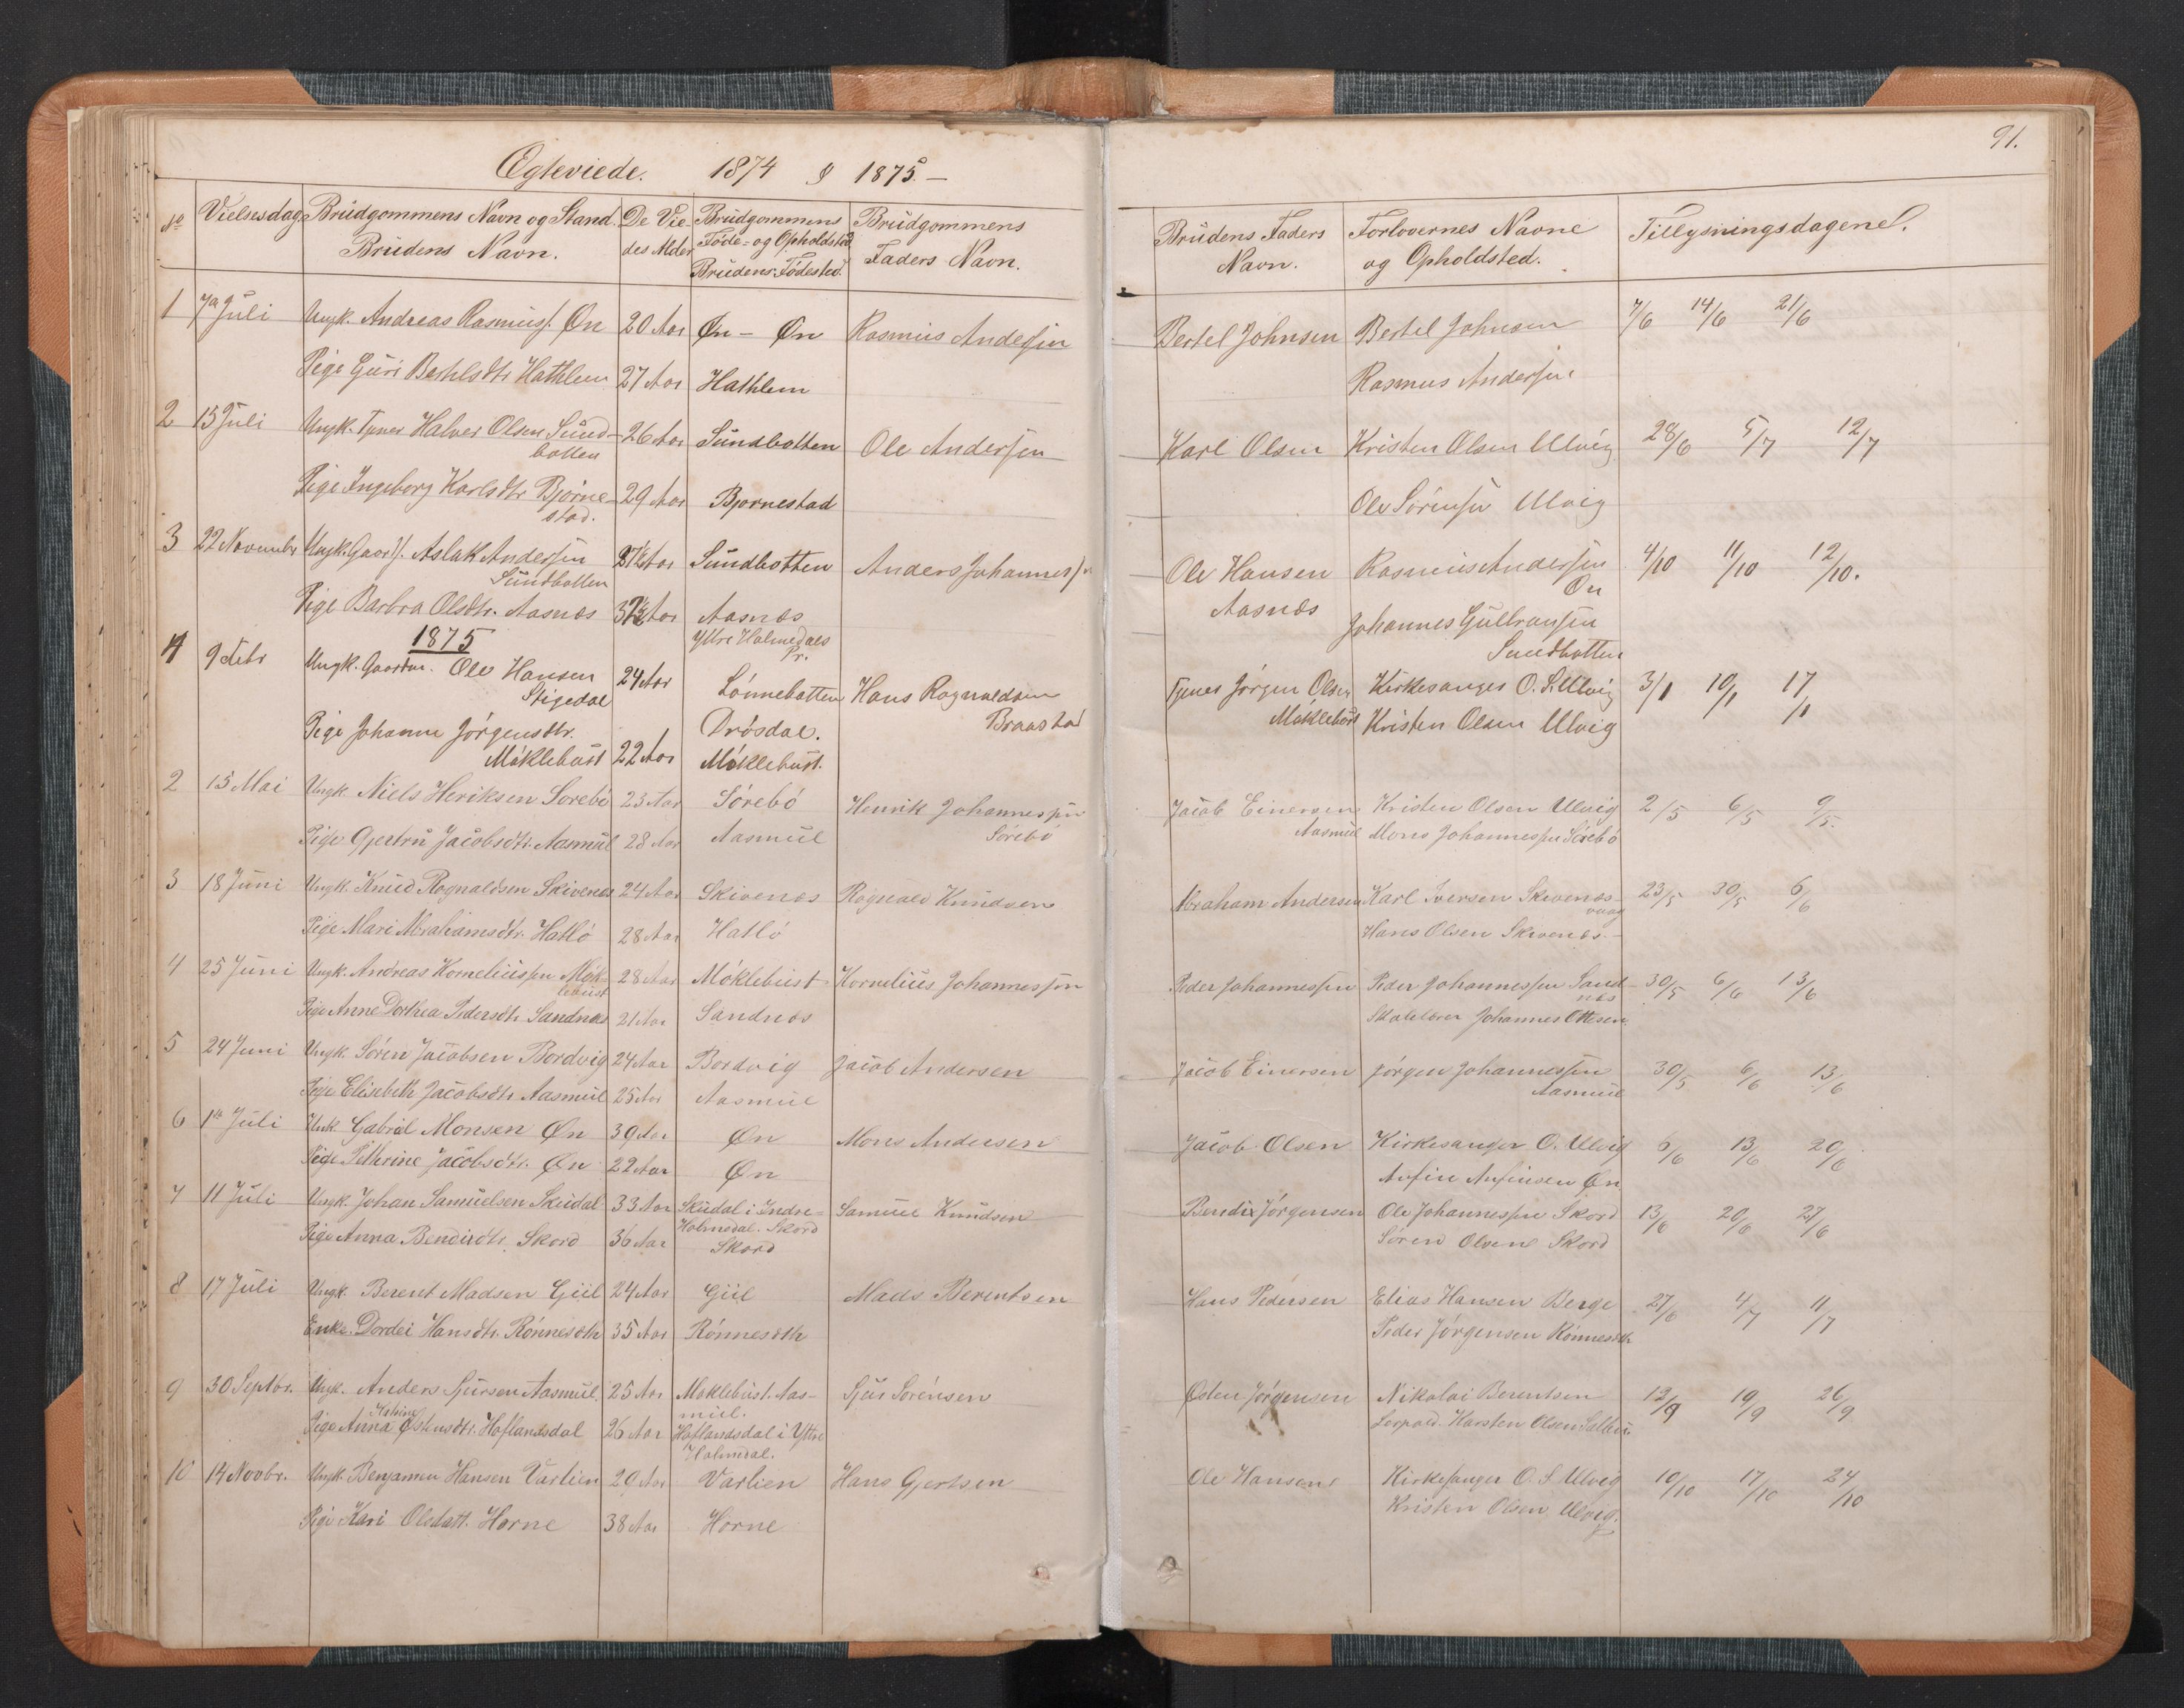 Ægteviede. 1874 & 1875.-
91.
No Vielsesdag Brudgommens Navn og Stand. De Vie- Brudgommens Brudgommens
Brudens Navn. des Alder Føde- og Opholdsted Faders Navn.
Brudens Fødested.
Brudens Faders Forlovernes Navne Tillysningsdagene.
Navn. og Opholdsted.
1 7de Juli Ungk. Andreas Rasmuss. Øn 20 Aar Øn - Øn Rasmus Andersen Bertel Johnsen Bertel Johnsen 7/6 14/6 21/6
Pige Guri Bertelsdtr Hathlem 27 Aar Hathlem Rasmus Andersen
2 15 Juli Ungk. Tjener Halver Olsen Sund- 26 Aar Sundbotten Ole Andersen Karl Olsen Kristen Olsen Ulvig 28/6 5/7 12/7
botten
Pige Ingeborg Karlsdtr Bjørne- 29 Aar Bjornestad Ole Sørensen Ulvig
stad.
3 22 Novembr Ungk. Gaard. Aslak Andersen Aar Sundbotten Anders Johanness. Ole Hansen Rasmus Andersen 4/10 11/10 12/10.
Sundbotten Aasnæs Øn
Pige Barbra Olsdtr. Aasnæs 37½ Aar Aasnæs Johannes Gulbransen
Yttre Holmedals Sundbotten
Pr.
1875
4 9 Febr Ungk. Gaardm. Ole Hansen 24 Aar Lønnebotten Hans Ragnaldsen Tjener Jørgen Olsen Kirkesanger O. S. Ulvig 3/1 10/1 17/1
Stigedal Drøsdal. Braastad Møklebust Kristen Olsen Ulvig
Pige Johanne Jørgensdtr.
Møklebust 22 Aar Møklebust.
2 15 Mai Ungk. Niels Heriksen Sorebø 23 Aar Sørebø Henrik Johannessen Jacob Einersen Kristen Olsen Ulvig 2/5 6/5 9/5.
Sørebø Aasmul Mons Johannessen Sørebø
Pige Gjertru Jacobsdtr. Aasmul 28 Aar Aasmul
3 18 Juni Ungk. Knud Ragnaldsen Skivenes 24 Aar Skivenes Ragnald Knudsen Abraham Andersen Karl Iversen Skivenes- 23/5 30/5 6/6
vaag
Pige Mari Abrahamsdtr. Hatlø 28 Aar Hatlø Hans Olsen Skivenes.-
4 25 Juni Ungk. Andreas Korneliussen Møk- 28 Aar Møklebust Kornelius Johannessen Peder Johannessen Peder Johannessen Sand- 30/5 6/6 13/6
lebust næs
Pige Anne Dorthea Pedersdtr Sandnæs 21 Aar Sandnæs Skolelærer Johannes Ottesen
5 24 Juni Ungk. Søren Jacobsen Bordvig 24 Aar Bordvig Jacob Andersen Jacob Einersen Jørgen Johannessen 30/5 6/6 13/6
Aasmul
Pige Elisebeth Jacobsdtr. Aasmul 25 Aar Aasmul
6 1ste Juli Unk. Gabriel Monsen Øn 39 Aar Øn Mons Andersen Jacob Olsen Kirkesanger O. Ulvig 6/6 13/6 20/6
Pige Pethrine Jacobsdtr. Øn 22 Aar Øn Anfin Anfinsen Øn
7 11 Juli Ungk. Johan Samuelsen Skudal 33 Aar Skudal i Indre- Samuel Knudsen Bendix Jørgensen Ole Johannessen Skord 13/6 20/6 27/6
Holmedal. Skord
Pige Anna Bendixdtr. Skord 36 Aar Skord Søren Olsen Skord
8 17 Juli Ungk. Berent Madsen Giil 24 Aar Giil Mads Berentsen Hans Pedersen Elias Hansen Berge 27/6 4/7 11/7
Enke. Dordei Hansdtr. Rønneseth 35 Aar Rønneseth Peder Jørgensen Rønneseth
9 30 Septbr. Ungk. Anders Sjursen Aasmul. 25 Aar Møklebust. Aas- Sjur Sørensen Østen Jørgensen Nikolai Berentsen 12/9 19/9 26/9
mul.
Katrine
Pige Anna Østensdtr. Hoflandsdal 26 Aar Hoflandsdal i Yttre Karsten Olsen
Holmdal.
10 14 Novbr. Ungk. Benjamin Hansen Varlien 29 Aar Varlien Hans Gjertsen Ole Hansen Kirkesanger O. S. Ulvig 10/10 17/10 24/10
Pige Kari Olsdatt. Horne 38 Aar Horne Kristen Olsen Ulvig.